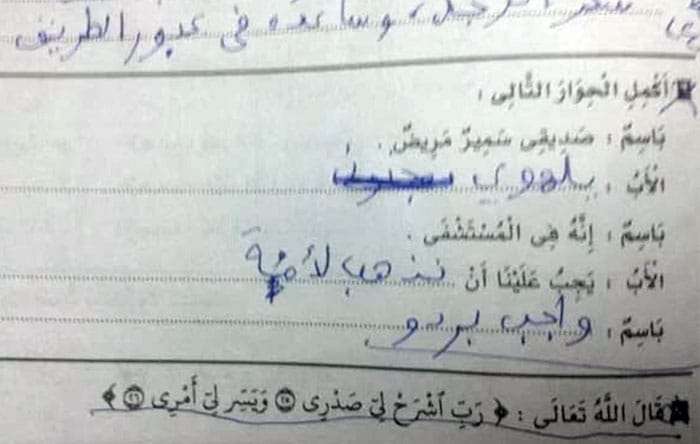 الرجل، وساعده في عبور الطريق
أَكْمِلِ الْحِوَارَ التَّالِى :
بَاسِمٌ : صَدِيقِى سَمِيرٌ مَرِيضٌ .
الْأَبُ : يلهوي
بَاسِمٌ : إِنَّهُ فِى الْمُسْتَشْفَى .
الْأَبُ : يَجِبُ عَلَيْنَا أَنْ نذهب لأمه
بَاسِمٌ : واجب بردو
قَالَ اللَّهُ تَعَالَى : ﴿ رَبِّ اشْرَحْ لِى صَدْرِى ٢٥ وَيَسِّرْ لِى أَمْرِى ٢٦ ﴾